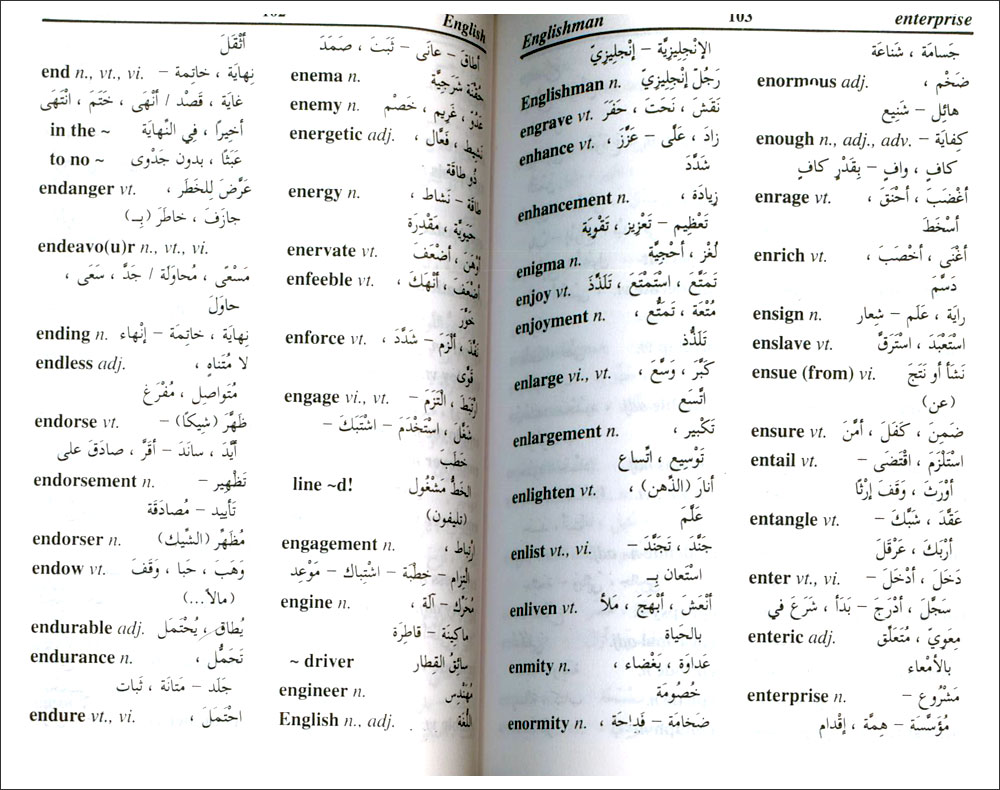 102
English
أثْقَلَ
end n., vt., vi. نِهايَة ، خاتِمة –
غايَة ، قَصْد / أنْهَى ، خَتَمَ ، انْتَهَى
in the ~ أخيرًا ، في النِّهايَة
to no ~ عَبَثًا ، بدون جَدْوَى
endanger vt. عَرَّضَ لِلخَطَر ،
جازَفَ ، خاطَرَ (بِـ)
endeavo(u)r n., vt., vi.
مَسْعًى ، مُحاوَلَة / جَدَّ ، سَعَى ،
حاوَلَ
ending n. نِهايَة ، خاتِمَة – إنْهاء
endless adj. لا مُتَناهٍ ،
مُتَواصِل ، مُفْرَغ
endorse vt. ظَهَّرَ (شِيكًا) –
أيَّدَ ، سانَدَ – أقَرَّ ، صادَقَ على
endorsement n. تَظْهِير –
تَأييد – مُصادَقَة
endorser n. مُظَهِّر (الشِّيك)
endow vt. وَهَبَ ، حَبا ، وَقَفَ
(مالاً...)
endurable adj. يُطاق ، يُحْتَمَل
endurance n. تَحَمُّل ،
جَلَد – مَتَانَة ، ثَبات
endure vt., vi. احْتَمَلَ ،
أطاقَ – عانَى – ثَبَتَ ، صَمَدَ
enema n. حُقْنَة شَرَجِيَّة
enemy n. عَدُوّ ، غَرِيم ، خَصْم
energetic adj. نَشِيط ، فَعَّال ،
ذُو طاقَة
energy n. طاقَة – نَشاط ،
حَيَوِيَّة ، مَقْدِرَة
enervate vt. أوْهَنَ ، أضْعَفَ
enfeeble vt. أضْعَفَ ، أنْهَكَ ،
خَوَّرَ
enforce vt. نَفَّذَ ، ألْزَمَ – شَدَّدَ ،
قَوَّى
engage vi., vt. ارْتَبَطَ ، الْتَزَمَ –
شَغَّلَ ، اسْتَخْدَمَ – اشْتَبَكَ –
خَطَبَ
line ~d! الخَطُّ مَشْغُول
(تليفون)
engagement n. ارْتِباط ،
الْتِزام – خِطْبَة – اشْتِباك – مَوْعِد
engine n. مُحَرِّك – آلَة ،
ماكِينَة – قاطِرَة
~ driver سائِقُ القِطار
engineer n. مُهَنْدِس
English n., adj. اللُّغَة
Englishman
103
enterprise
الإنْجِلِيزِيَّة – إنْجلِيزِيّ
Englishman n. رَجُلٌ إنْجِلِيزِيّ
engrave vt. نَقَشَ ، نَحَتَ ، حَفَرَ
enhance vt. زادَ ، عَلَّى – عَزَّزَ ،
شَدَّدَ
enhancement n. زِيادَة ،
تَعْظِيم – تَعْزِيز ، تَقْوِيَة
enigma n. لُغْز ، أحْجِيَّة
enjoy vt. تَمَتَّعَ ، اسْتَمْتَعَ ، تَلَذَّذَ
enjoyment n. مُتْعَة ، تَمَتُّع ،
تَلَذُّذ
enlarge vi., vt. كَبَّرَ ، وَسَّعَ ،
اتَّسَع
enlargement n. تَكْبير ،
تَوْسِيع ، اتِّساع
enlighten vt. أنارَ (الذِّهن) ،
عَلَّمَ
enlist vt., vi. جَنَّدَ ، تَجَنَّدَ –
اسْتَعان بِـ
enliven vt. أنْعَشَ ، أبْهَجَ ، مَلأ
بالحَياة
enmity n. عَداوَة ، بَغْضاء ،
خُصُومَة
enormity n. ضَخامَة – فَداحَة ،
جَسامَة ، شَناعَة
enormous adj. ضَخْم ،
هائِل – شَنِيع
enough n., adj., adv. كِفايَة –
كافٍ ، وافٍ – بِقَدْرٍ كافٍ
enrage vt. أغْضَبَ ، أحْنَقَ ،
أسْخَطَ
enrich vt. أغْنَى ، أخْصَبَ ،
دَسَّمَ
ensign n. رايَة ، عَلَم – شِعار
enslave vt. اسْتَعْبَدَ ، اسْتَرَقَّ
ensue (from) vi. نَشَأ أو نَتَجَ
(عن)
ensure vt. ضَمِنَ ، كَفَلَ ، أمَّنَ
entail vt. اسْتَلْزَمَ ، اقْتَضَى –
أوْرَثَ ، وَقَفَ إرْثًا
entangle vt. عَقَّدَ ، شَبَّكَ –
أرْبَكَ ، عَرْقَلَ
enter vt., vi. دَخَلَ ، أدْخَلَ –
سَجَّلَ ، أدْرَجَ – بَدَأ ، شَرَعَ في
enteric adj. مِعَوِيّ ، مُتَعَلِّق
بالأمْعاء
enterprise n. مَشْرُوع –
مُؤَسَّسَة – هِمَّة ، إقْدام